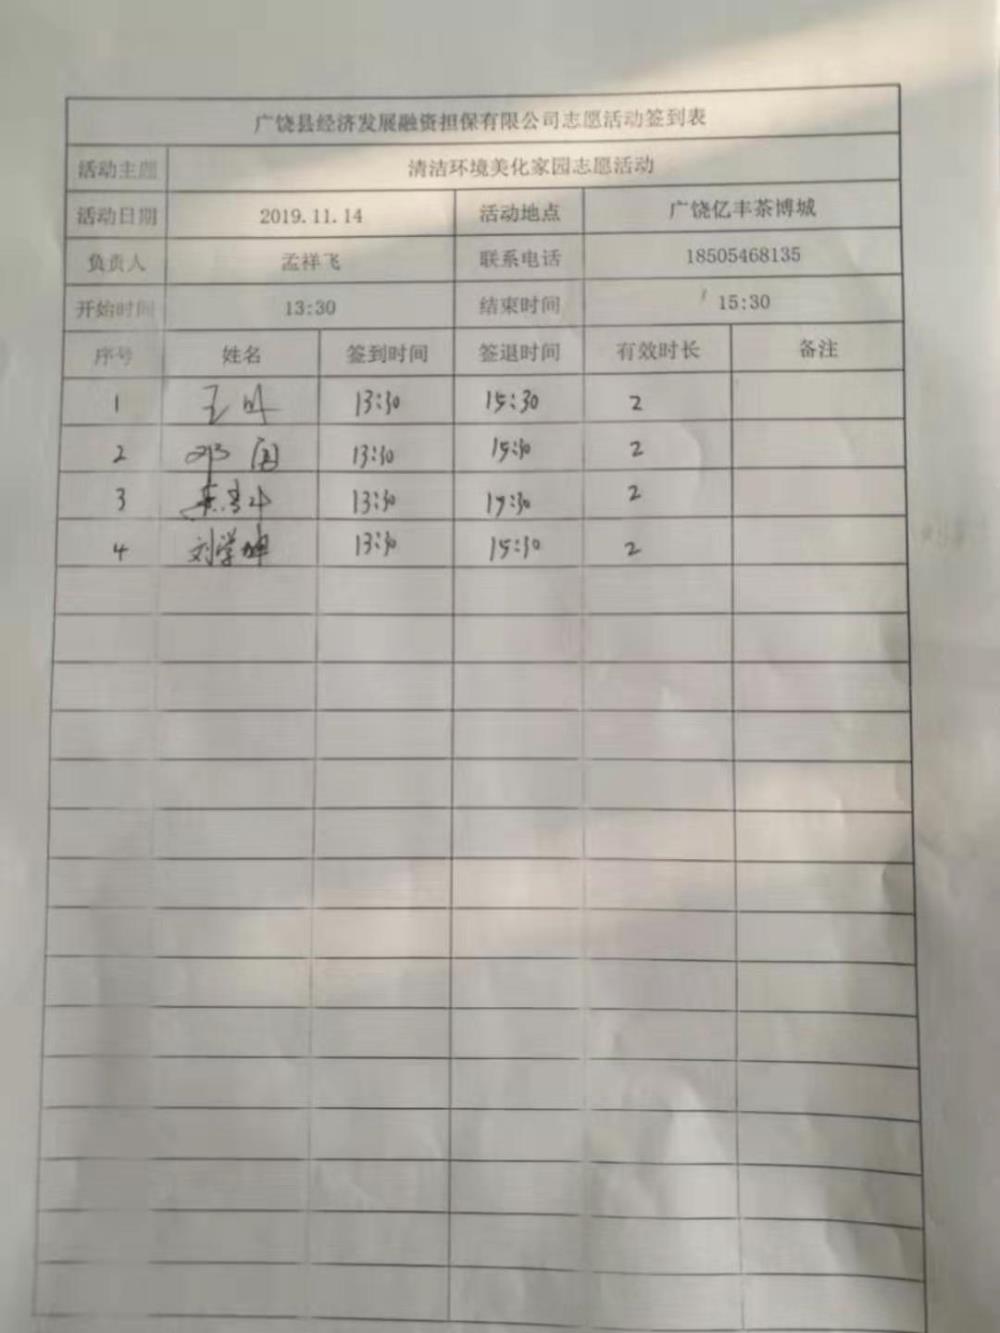 广饶县经济发展融资担保有限公司志愿活动签到表
活动主题 清洁环境美化家园志愿活动
活动日期 2019.11.14 活动地点 广饶亿丰茶博城
负责人 孟祥飞 联系电话 18505468135
开始时间 13:30 结束时间 15:30
序号 姓名 签到时间 签退时间 有效时长 备注
1 13:30 15:30 2
2 13:30 15:30 2
3 13:30 15:30 2
4 刘学坤 13:30 15:30 2